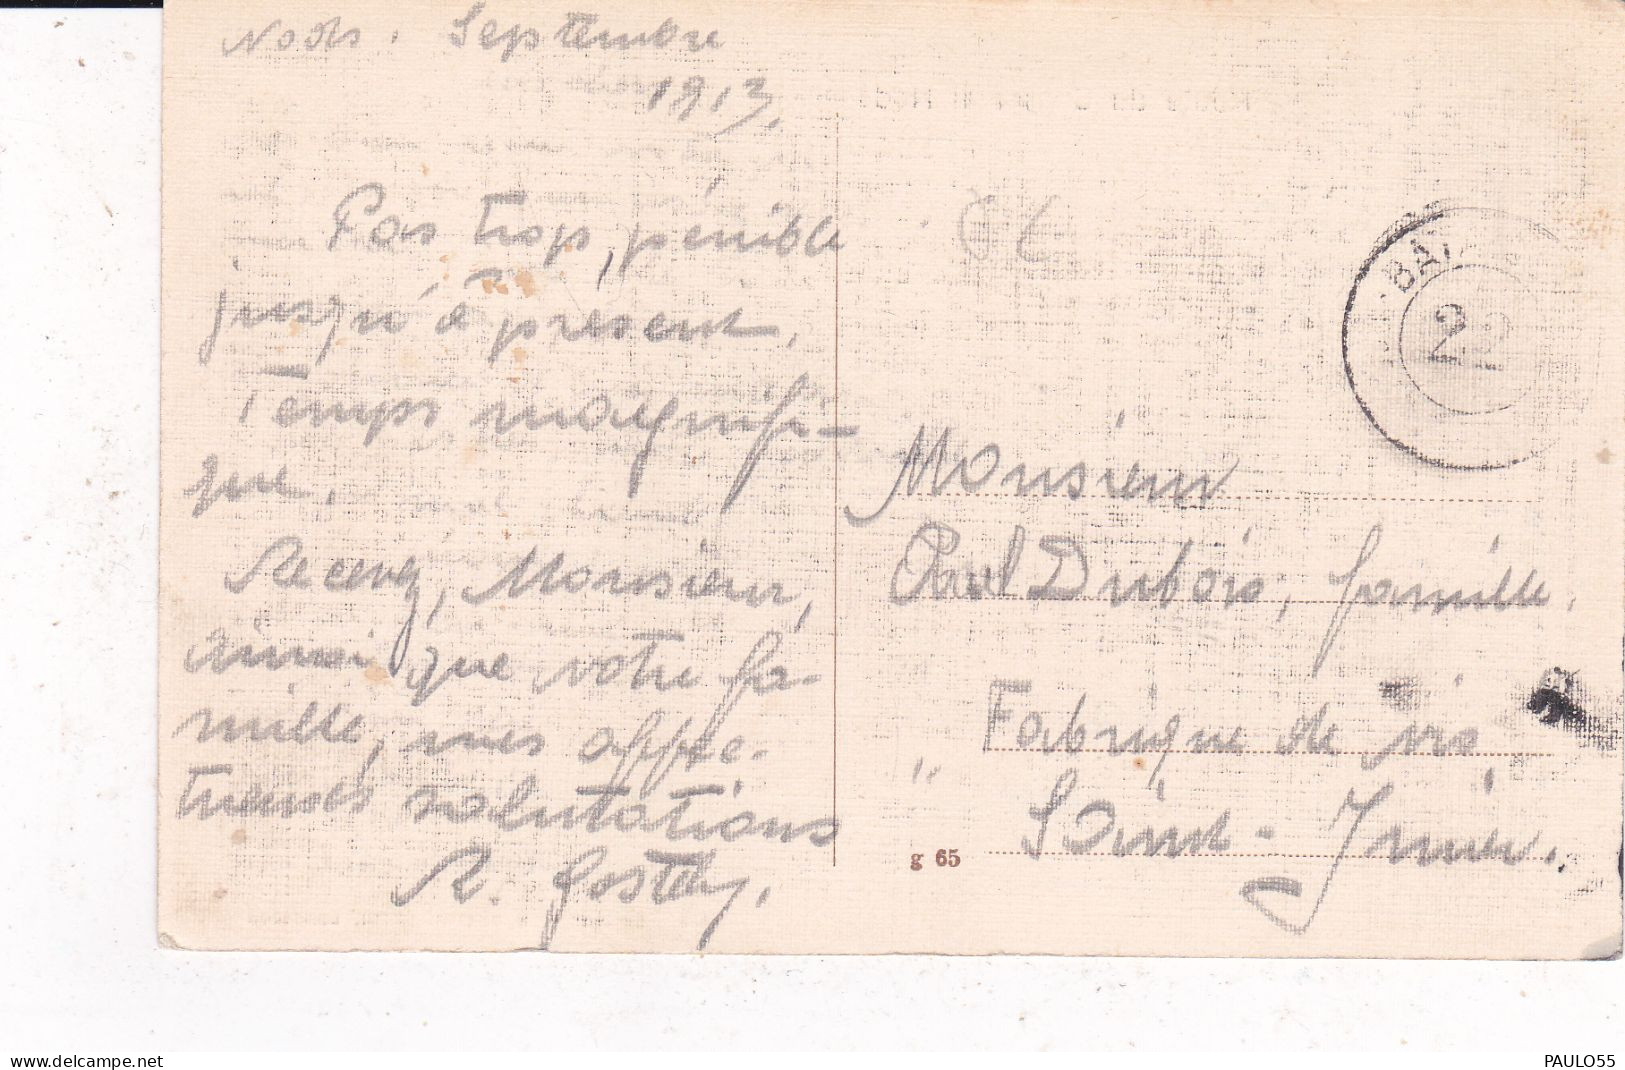 Nods. Septembre
1913.
Pas trop pénible
jusqu'à présent.
Temps magnifi-
que.
Recevez, Monsieur,
ainsi que votre fa-
mille, mes affec-
tueuses salutations
R.
Monsieur
Paul Dubois, famille,
Fabrique de vis
Saint-Imier.
g 65
BAT
2
www.delcampe.net
PAULO55